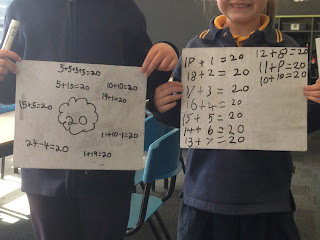 5+5+5+5=20
5+15=20
10+10=20
19+1=20
15+5=20
20
11+10-1=20
24-4=20
1+19=20
18+2=20
17+3=20
16+4=20
15+5=20
14+6=20
13+7=20
12+8=20
10+10=20